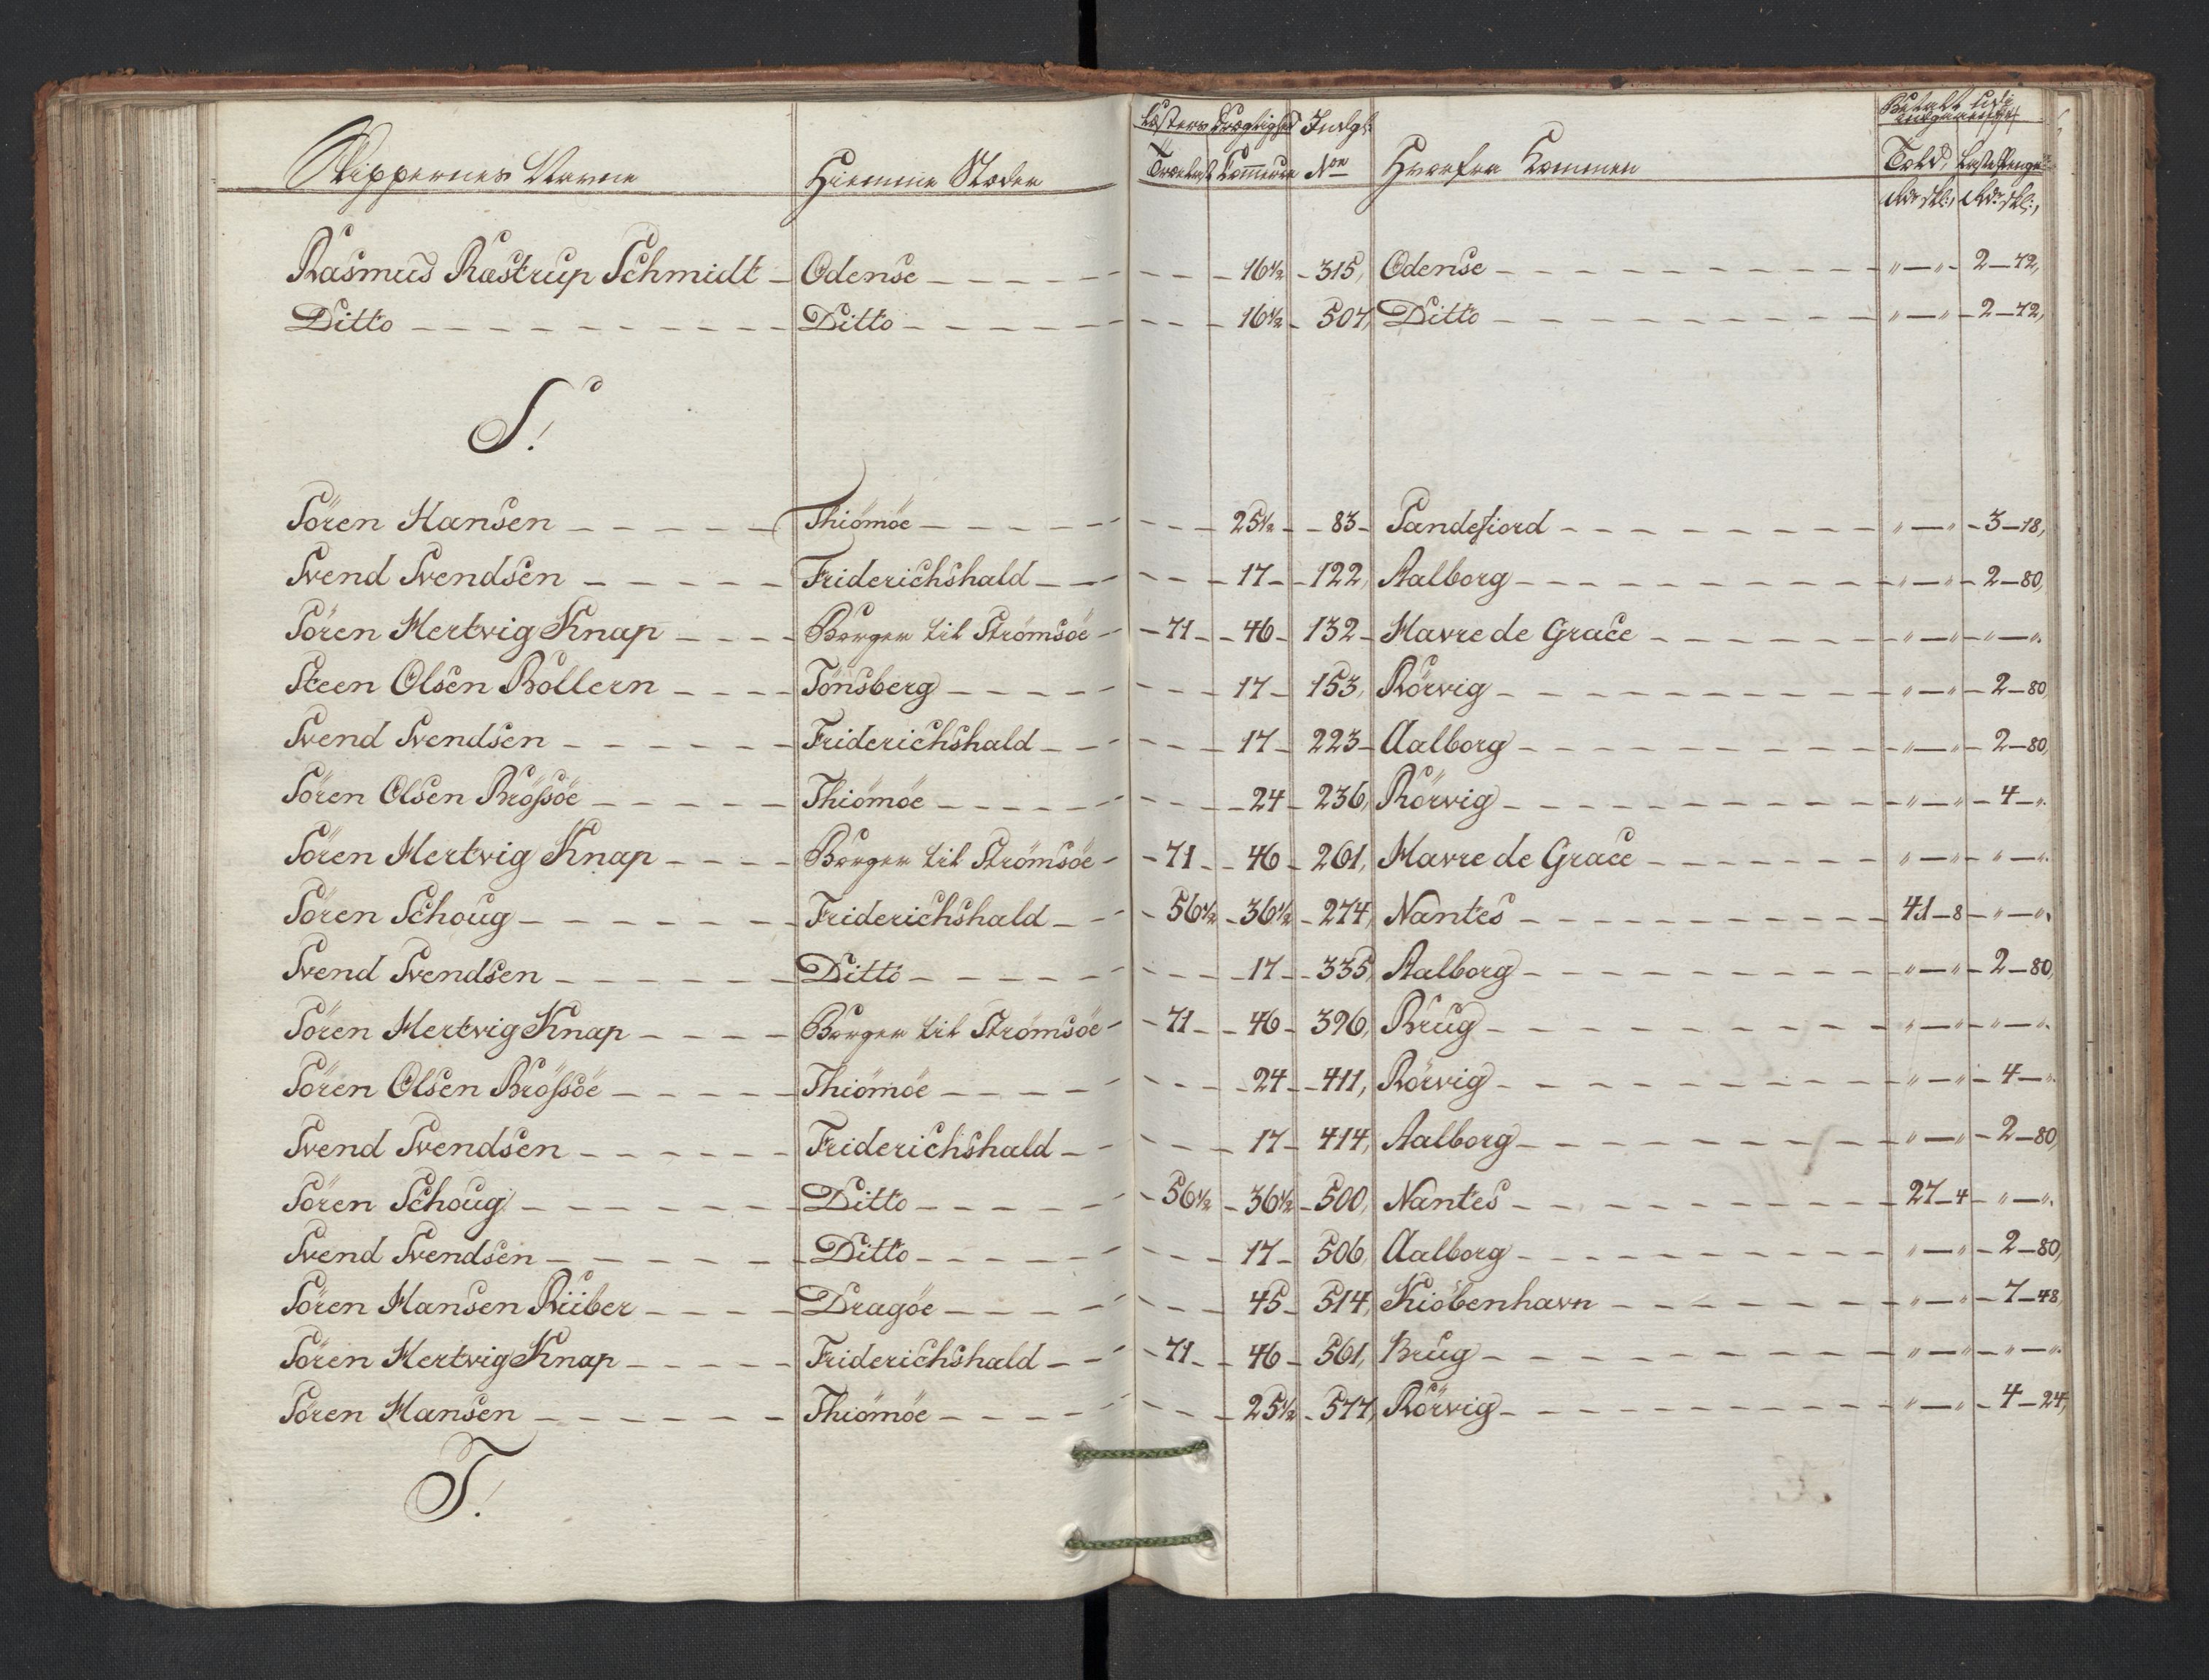 Skippernes Navne | Hiemme Stæder | Læsters Drægtighed | Indgl: | Betalt ved Indgaaende
Trælast | Commerce | No | Hvorfra kommen | Told | Læstepenge
Rdr skl: | Rdr skl:
Rasmus Rastrup Schmidt | Odense | 16½ | 315, | Odense | " — " | 2 — 72,
Ditto | Ditto | 16½ | 507, | Ditto | " — " | 2 — 72,
S!
Sören Hansen | Thiömöe | 25½ | 83 | Sandefiord | " — " | 3 — 18,
Svend Svendsen | Friderichshald | 17 | 122, | Aalborg | " — " | 2 — 80,
Sören Hertvig Knap | Borger til Strömsöe | 71 | 46 | 132 | Havre de Grace | " — " | " — ".
Steen Olsen Bollern | Tönsberg | 17 | 153, | Rörvig | " — " | 2 — 80,
Svend Svendsen | Friderichshald | 17 | 223 | Aalborg | " — " | 2 — 80,
Sören Olsen Bröfsöe | Thiömöe | 24 | 236, | Rörvig | " — " | 4 — ".
Sören Hertvig Knap | Borger til Strömsöe | 71 | 46 | 261, | Havre de Grace | " — " | " — ".
Sören Schoug | Friderichshald | 56½ | 36½ | 274, | Nantes | 41 — 8 | " — ".
Svend Svendsen | Ditto | 17 | 335, | Aalborg | " — " | 2 — 80,
Sören Hertvig Knap | Borger til Strömsöe | 71 | 46 | 396, | Brug | " — " | " — ".
Sören Olsen Bröfsöe | Thiömöe | 24 | 411, | Rörvig | " — " | 4 — ".
Svend Svendsen | Friderichshald | 17 | 414, | Aalborg | " — " | 2 — 80,
Sören Schoug | Ditto | 56½ | 36½ | 500, | Nantes | 27 — 4 | " — ".
Svend Svendsen | Ditto | 17 | 506, | Aalborg | " — " | 2 — 80,
Sören Hansen Riiber | Dragöe | 45 | 514, | Kiöbenhavn | " — " | 7 — 48,
Sören Hertvig Knap | Friderichshald | 71 | 46 | 561, | Brug | " — " | " — ".
Sören Hansen | Thiömöe | 25½ | 577, | Rörvig | " — " | 4 — 24,
T!